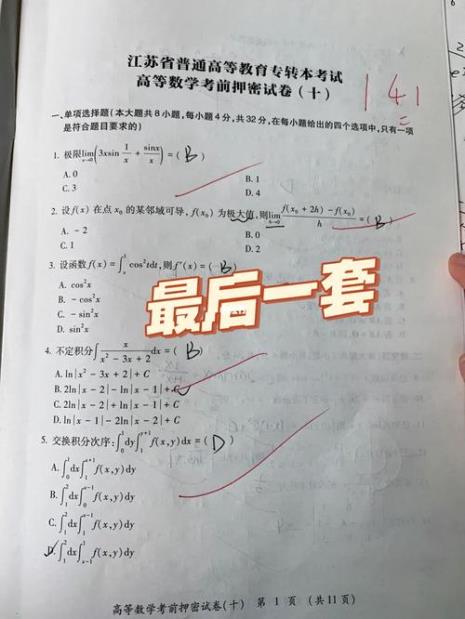 江苏省普通高等教育专转本考试
高等数学考前押密试卷(十)
141
一、单项选择题(本大题共8小题,每小题4分,共32分,在每小题给出的四个选项中,只有一项
是符合题目要求的)
1. 极限lim(x→0)(3xsin 1/x + sinx/x) = ( B )
A. 0 B. 1
C. 3 D. 4
2. 设f(x)在点x₀的某邻域可导,f(x₀)为极大值,则lim(h→0) (f(x₀+2h)-f(x₀))/h = ( B )
A. -2 B. 0
C. 1 D. 2
3. 设函数f(x)=∫ cos²tdt,则f′(x)=( B )
A. cos²x
B. -cos²x
C. -sin²x
D. sin²x
最后一套
4. 不定积分∫ x/(x²-3x+2) dx = ( B )
A. ln|x²-3x+2|+C
B. 2ln|x-2|-ln|x-1|+C
C. 2ln|x-2|+ln|x-1|+C
D. ln|x-1|-2ln|x-2|+C
5. 交换积分次序:∫₀¹dy∫₁^(y+1) f(x,y)dx = ( D )
A. ∫₀¹dx∫₁^(x+1) f(x,y)dy
B. ∫₁²dx∫₀^(x-1) f(x,y)dy
C. ∫₀¹dx∫₁^(x-1) f(x,y)dy
D. ∫₁²dx∫ₓ₋₁¹ f(x,y)dy
高等数学考前押密试卷(十) 第1页 (共11页)